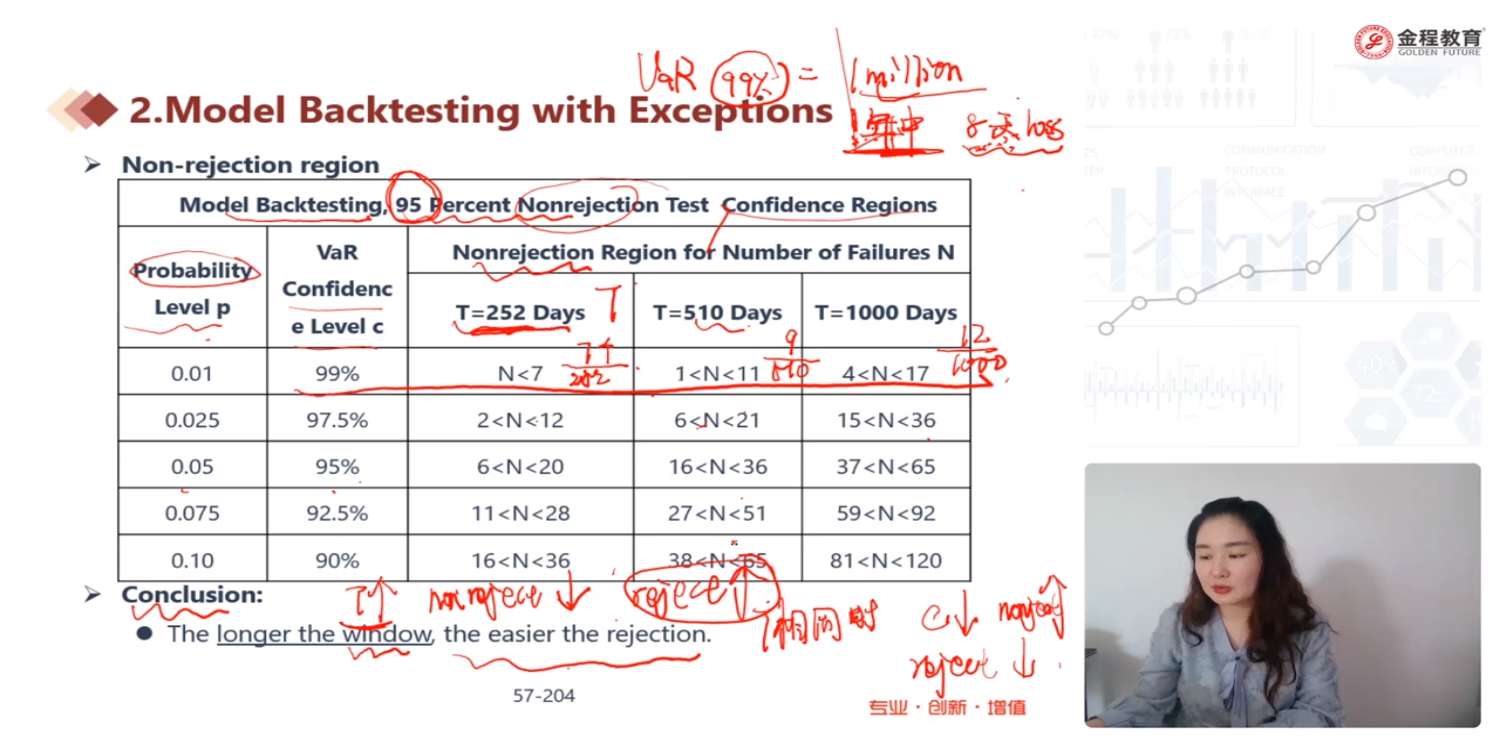 金程教育
GOLDEN FUTURE
VaR (99%) = 1 million
2.Model Backtesting with Exceptions
1年中 8天 loss
➢ Non-rejection region
Model Backtesting, 95 Percent Nonrejection Test Confidence Regions
Probability Level p
VaR Confidenc e Level c
Nonrejection Region for Number of Failures N
T=252 Days T
T=510 Days
T=1000 Days
0.01 99% N<7 1<N<11 9/510 4<N<17 12/1000
0.025 97.5% 2<N<12 6<N<21 15<N<36
0.05 95% 6<N<20 16<N<36 37<N<65
0.075 92.5% 11<N<28 27<N<51 59<N<92
0.10 90% 16<N<36 38<N<65 81<N<120
➢ Conclusion:
T↑ nonreject ↓ reject ↑
● The longer the window, the easier the rejection.
T相同时 C↓ nonreject↑
reject ↓
57-204
专业·创新·增值